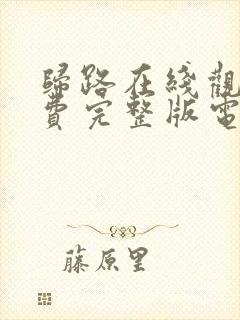 歸路在綫觀
費完整版電
藤原里